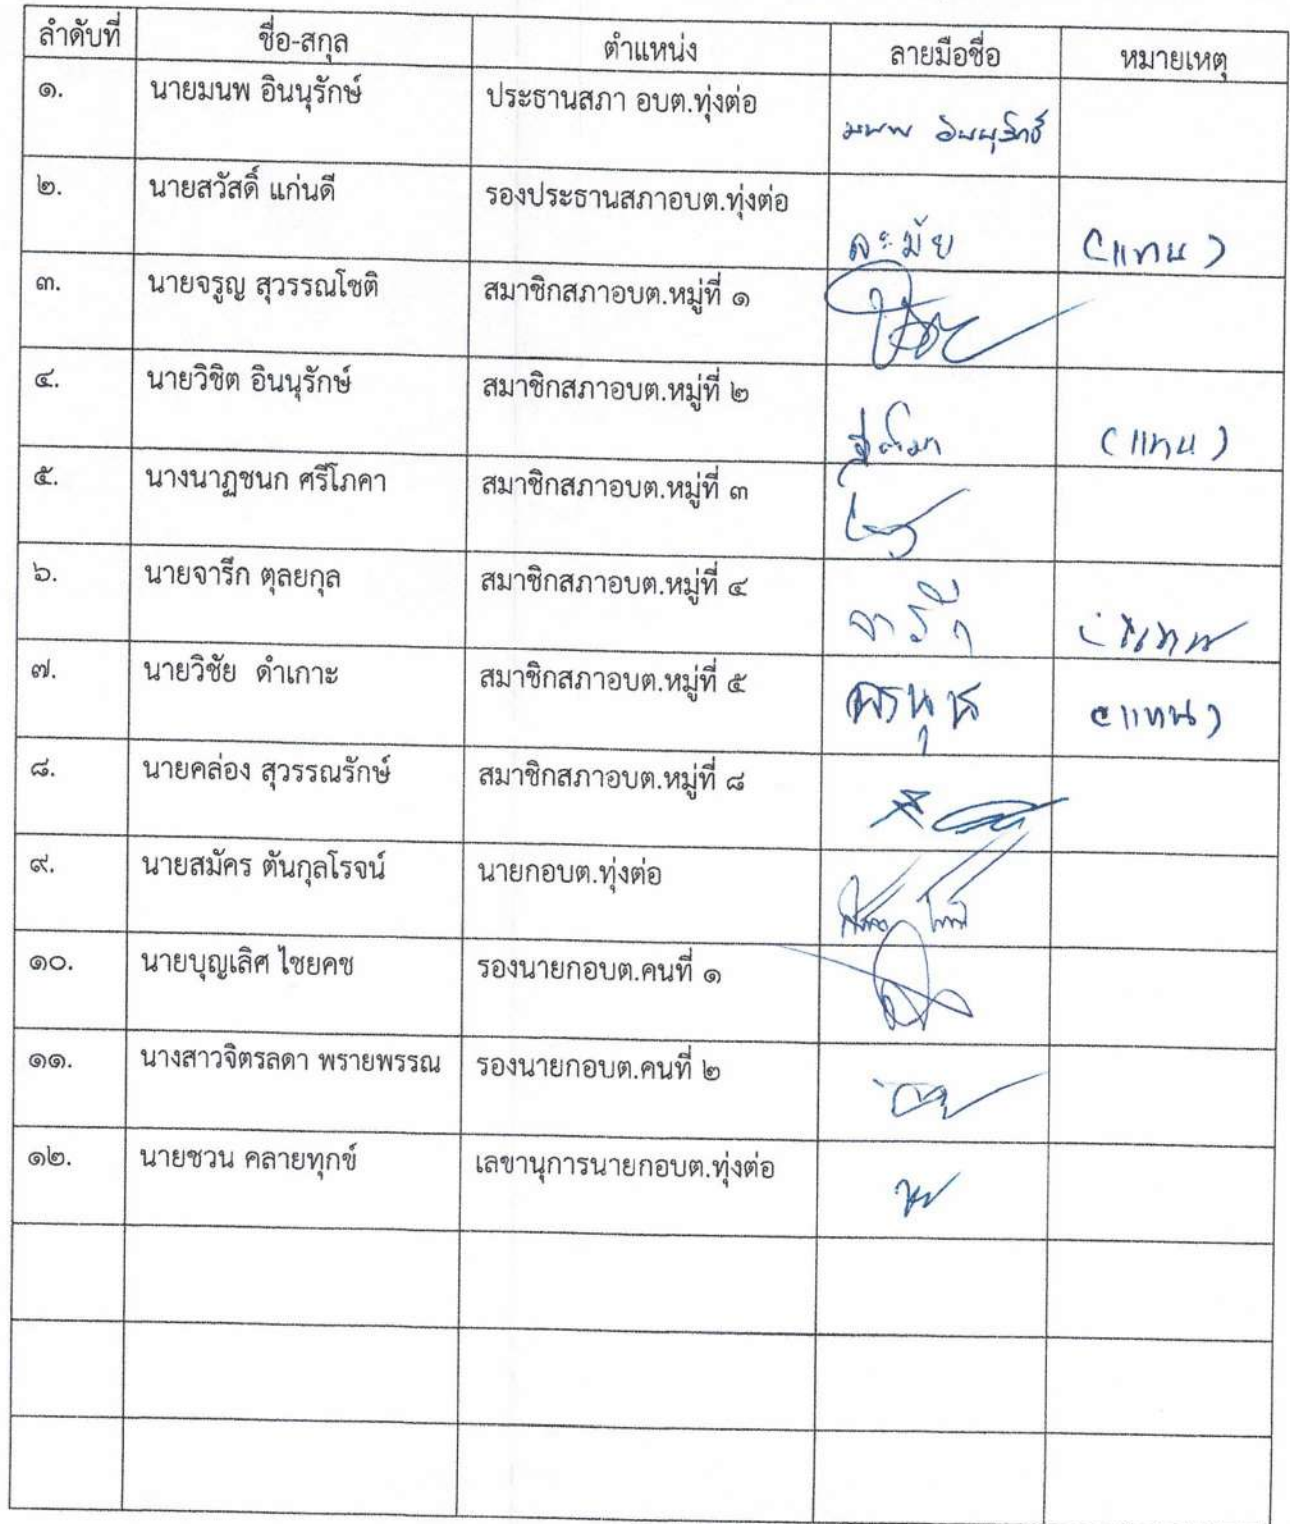 ลำดับที่ ชื่อ-สกุล ตำแหน่ง ลายมือชื่อ หมายเหตุ
๑. นายมนพ อินนุรักษ์ ประธานสภา อบต.ทุ่งต่อ มนพ อินนุรักษ์
๒. นายสวัสดิ์ แก่นดี รองประธานสภาอบต.ทุ่งต่อ ละมัย (แทน)
๓. นายจรูญ สุวรรณโชติ สมาชิกสภาอบต.หมู่ที่ ๑
๔. นายวิชิต อินนุรักษ์ สมาชิกสภาอบต.หมู่ที่ ๒ (แทน)
๕. นางนาฏชนก ศรีโภคา สมาชิกสภาอบต.หมู่ที่ ๓
๖. นายจารึก ตุลยกุล สมาชิกสภาอบต.หมู่ที่ ๔ จารึก
๗. นายวิชัย ดำเกาะ สมาชิกสภาอบต.หมู่ที่ ๕ (แทน)
๘. นายคล่อง สุวรรณรักษ์ สมาชิกสภาอบต.หมู่ที่ ๘
๙. นายสมัคร ตันกุลโรจน์ นายกอบต.ทุ่งต่อ
๑๐. นายบุญเลิศ ไชยคช รองนายกอบต.คนที่ ๑
๑๑. นางสาวจิตรลดา พรายพรรณ รองนายกอบต.คนที่ ๒
๑๒. นายชวน คลายทุกข์ เลขานุการนายกอบต.ทุ่งต่อ